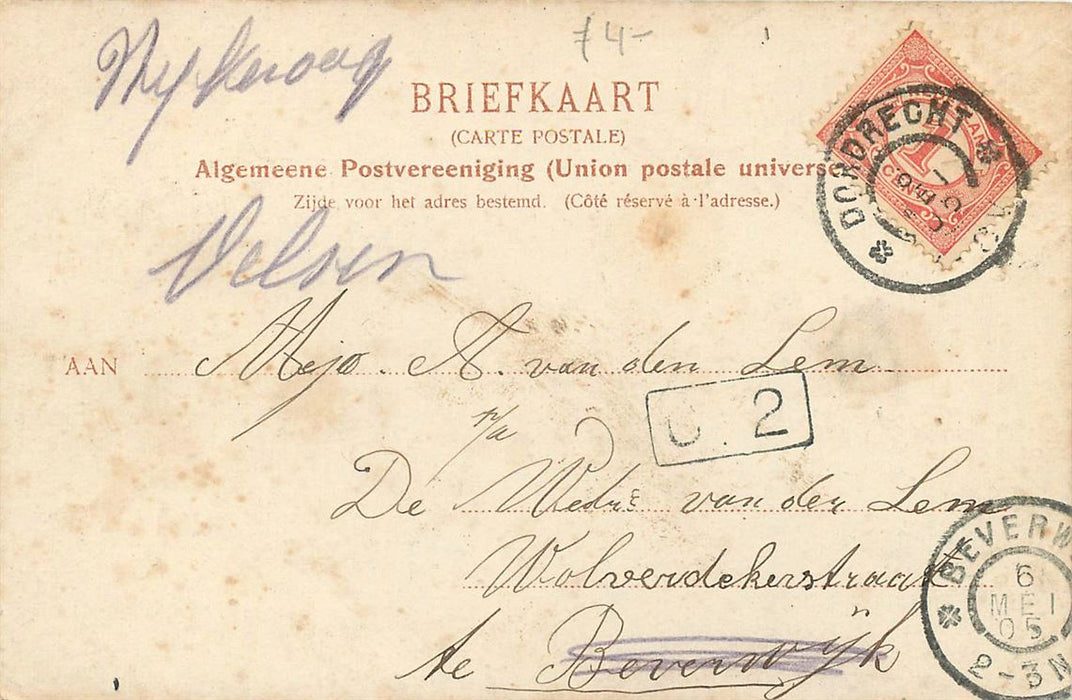 ƒ4-
BRIEFKAART
(CARTE POSTALE)
Algemeene Postvereeniging (Union postale univers
Zijde voor het adres bestemd. (Côté réservé à l'adresse.)
DORDRECHT
Velsen
AAN Mejo. A. van den Lem
p/a
C. 2
De Wedr. van den Lem
Wolverdekerstraat
te Beverwijk
BEVERW
6
MEI
05
2-3N